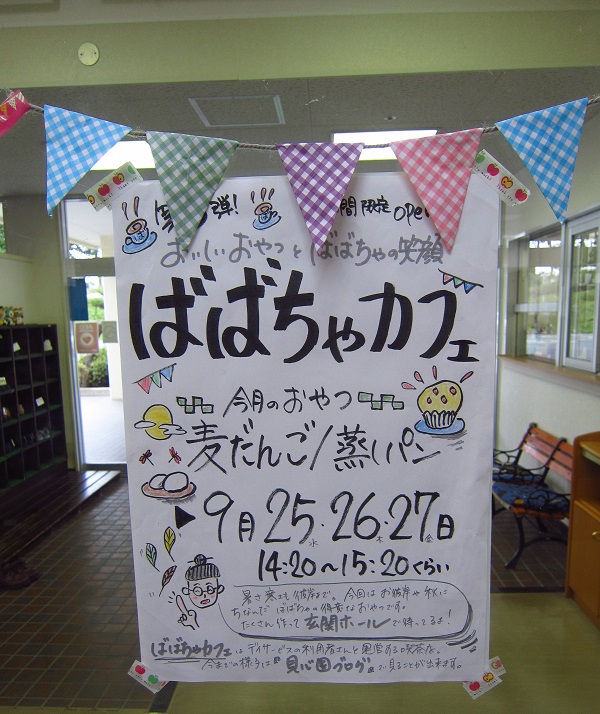 弾!
間限定 open
おいしいおやつとばばちゃの笑顔
ばばちゃカフェ
今月のおやつ
麦だんご/蒸しパン
▶9月25・26・27日
水 木 金
14:20~15:20くらい
暑さ寒さも彼岸まで。今回はお彼岸や秋に
ちなんだばばちゃの得意なおやつです。
たくさん作って玄関ホールで待ってるよ!
ばばちゃカフェはデイサービスの利用者さんと運営する喫茶店。
今までの様子は『見心園ブログ』で見ることが出来ます。